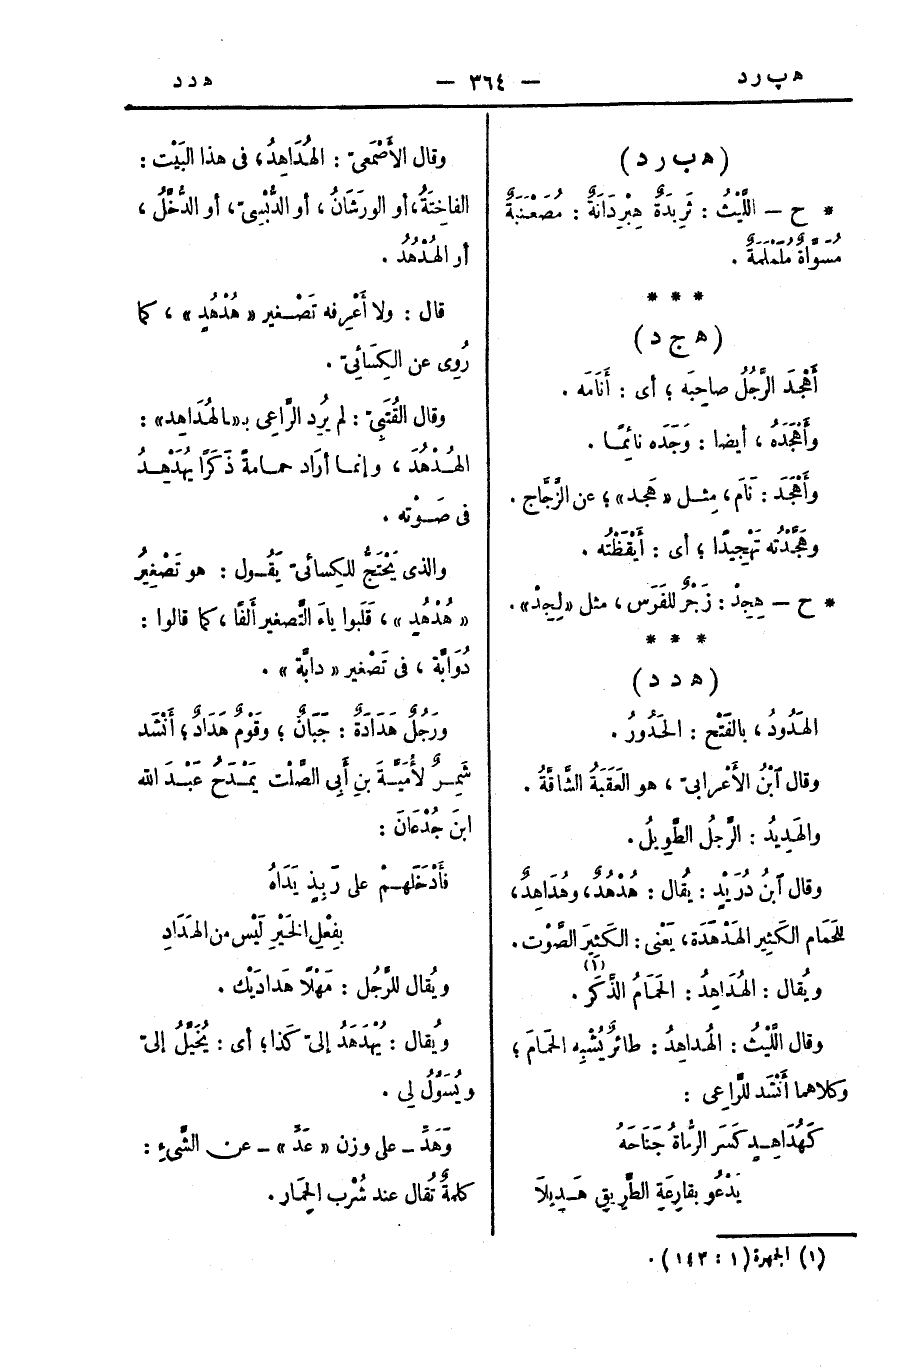 ه ب ر د — ٣٦٤ — ه د د
( ه ب ر د )
* ح — اللَّيْثُ : ثَرِيدَةٌ هِبْرِدَانَةٌ : مُصَعْنَبَةٌ
مُسَوَّاةٌ مُلَمْلَمَةٌ .
* * *
( ه ج د )
أَهْجَدَ الرَّجُلُ صاحِبَه ؛ أى : أَنَامَه .
وأَهْجَدَهُ ، أيضا : وَجَدَه نائِمًا .
وأَهْجَدَ : نَامَ ، مِثل « هَجد » ؛ عن الزَّجَّاج .
وهَجَّدْتُه تَهْجِيدًا ؛ أى : أَيْقَظْتُه .
* ح — هِجِدْ : زَجْرٌ للفَرَس ، مثل « إِجِدْ » .
* * *
( ه د د )
الهَدُودُ ، بالفَتْح : الحَدُورُ .
وقال ٱبْنُ الأَعْرابىّ ، هو العَقَبَةُ الشَّاقَّةُ .
والهَدِيدُ : الرَّجُلُ الطَّوِيلُ .
وقال ٱبنُ دُرَيْدٍ : يُقال : هُدْهُدٌ ، وهُدَاهِدٌ ،
للحَمَام الكَثِير الهَدْهَدَة ، يَعْنى : الكَثِيرَ الصَّوْت .
ويُقال : الهُدَاهِدُ : الحَمَامُ الذَّكَر (١) .
وقال اللَّيْثُ : الهُداهِدُ : طائرٌ يُشْبِه الحَمَامَ ؛
وكلاهما أَنْشَد للرَّاعِى :
كَهُدَاهِدٍ كَسَرَ الرُّمَاةُ جَنَاحَهُ
يَدْعُو بقارِعَةِ الطَّرِيقِ هَدِيلَا
(١) الجمهرة (١ : ١٤٣) .
وقال الأَصْمَعىّ : الهُدَاهِدُ ، فى هذا البَيْت :
الفاخِتَةُ ، أو الورَشَانُ ، أو الدُّبْسِىّ ، أو الدُّخَّلُ ،
أو الهُدْهُدُ .
قال : ولا أَعْرِفه تَصْغير « هُدْهُدٍ » ، كما
رُوِى عن الكِسَائِىّ .
وقال القُتَبِىّ : لم يُرِد الرَّاعِى بـ«ـالهُدَاهِد» :
الهُدْهُدَ ، وإنما أرَاد حمامةً ذَكَرًا يُهَدْهِدُ
فى صَوْته .
والذى يَحْتَجُّ للكِسائىّ يَقُول : هو تَصْغِيرُ
« هُدْهُدٍ » ، قَلَبوا ياءَ التَّصغير أَلفًا ، كما قالوا :
دُوَابَّة ، فى تَصْغير « دابَّة » .
ورَجُلٌ هَدَادَةٌ : جَبَانٌ ؛ وقَوْمٌ هَدَادٌ ؛ أَنْشَد
شَمِرٌ لأُمَيَّةَ بنِ أَبِى الصَّلْت يَمْدَحُ عَبْدَ الله
ابنَ جُدْعَانَ :
فأَدْخَلَهمْ على رَبِذٍ يَدَاهُ
بِفِعْلِ الخَيْرِ لَيْس من الهَدَادِ
ويُقال للرَّجُل : مَهْلًا هَدادَيْك .
ويُقال : يُهَدْهَدُ إلىّ كَذا ؛ أى : يُخَيَّلُ إلىّ
ويُسَوَّلُ لِى .
وَهَدَّ ــ على وزن « عَدَّ » ــ عن الشَّىءِ :
كلمةٌ تُقال عند شُرْب الحِمَار .